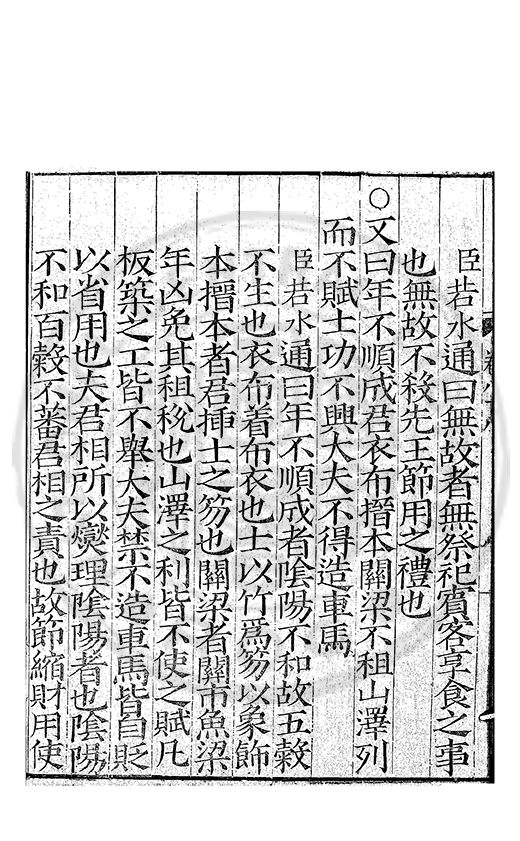 臣若水通曰無故者無祭祀賓客享食之事
也無故不殺先王節用之禮也
○文曰年不順成君衣布搢本關梁不租山澤列
而不賦土功不興大夫不得造車馬
臣若水通曰年不順成者隂陽不和故五穀
不生也衣布着布衣也士以竹爲笏以象飾
本搢本者君揷士之笏也關梁者關市魚梁
年凶免其租稅也山澤之利皆不使之賦凡
板築之工皆不舉大夫禁不造車馬皆自貶
以省用也夫君相所以爕理隂陽者也隂陽
不和百穀不蕃君相之責也故節縮財用使